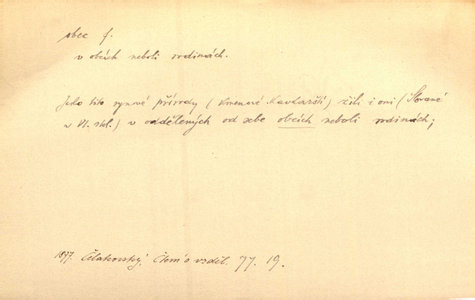 obec f.
v obcích neboli rodinách.
Jako tito synové přírody (kmenové kavkazští) žili i oni (Slované
v VI. stol.) v oddělených od sebe obcích neboli rodinách;
1877. Čelakovský, Čten. o vzděl. 77. 19.